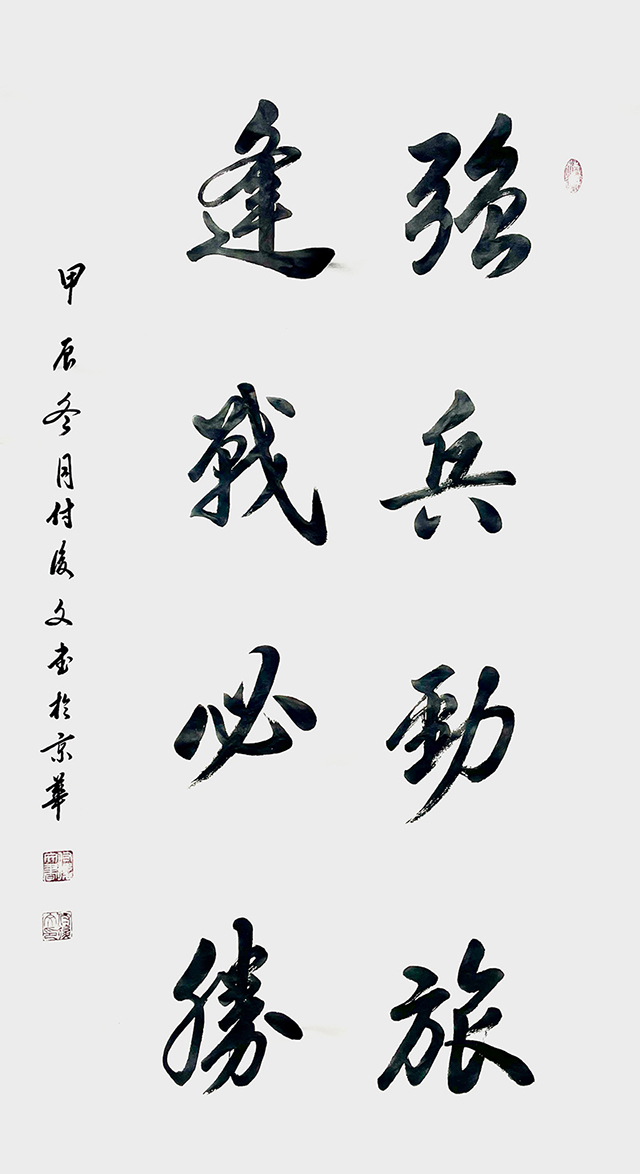 強兵勁旅
逢戰必勝
甲辰冬月付後文书於京華